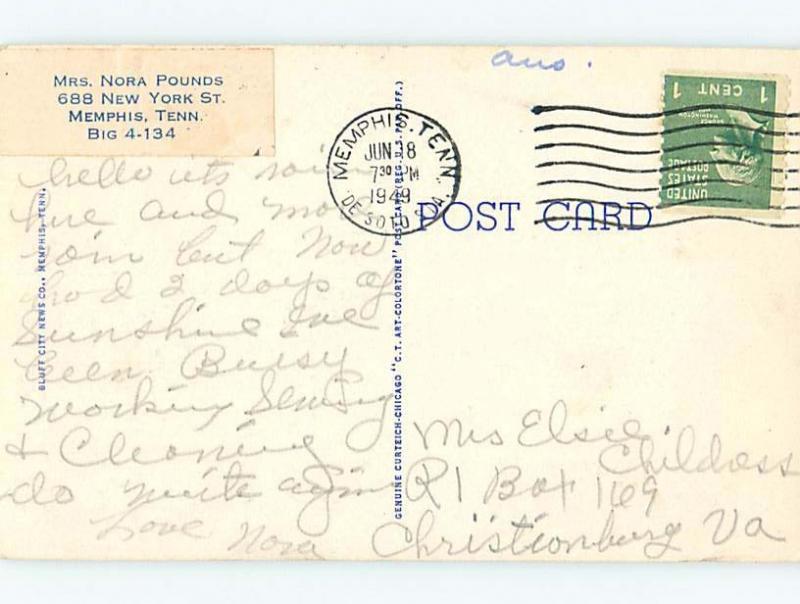 ans.
MRS. NORA POUNDS
688 NEW YORK ST.
MEMPHIS, TENN.
BIG 4-134
MEMPHIS, TENN.
JUN 8
7 30 PM
1949
DE SOTO STA.
1 CENT 1
GEORGE WASHINGTON
UNITED
STATES
POSTAGE
POST CARD
hello its rain
and more
rain but Now
had 2 days of
Sunshine Ive
been Buisy
working Sewing
& Cleaning
do write again
Love Nora
BLUFF CITY NEWS CO., MEMPHIS, TENN.
GENUINE CURTEICH-CHICAGO "C.T. ART-COLORTONE" POST CARD (REG. U.S. PAT. OFF.)
Mrs Elsie
Childress
R 1 Box 169
Christionburg Va